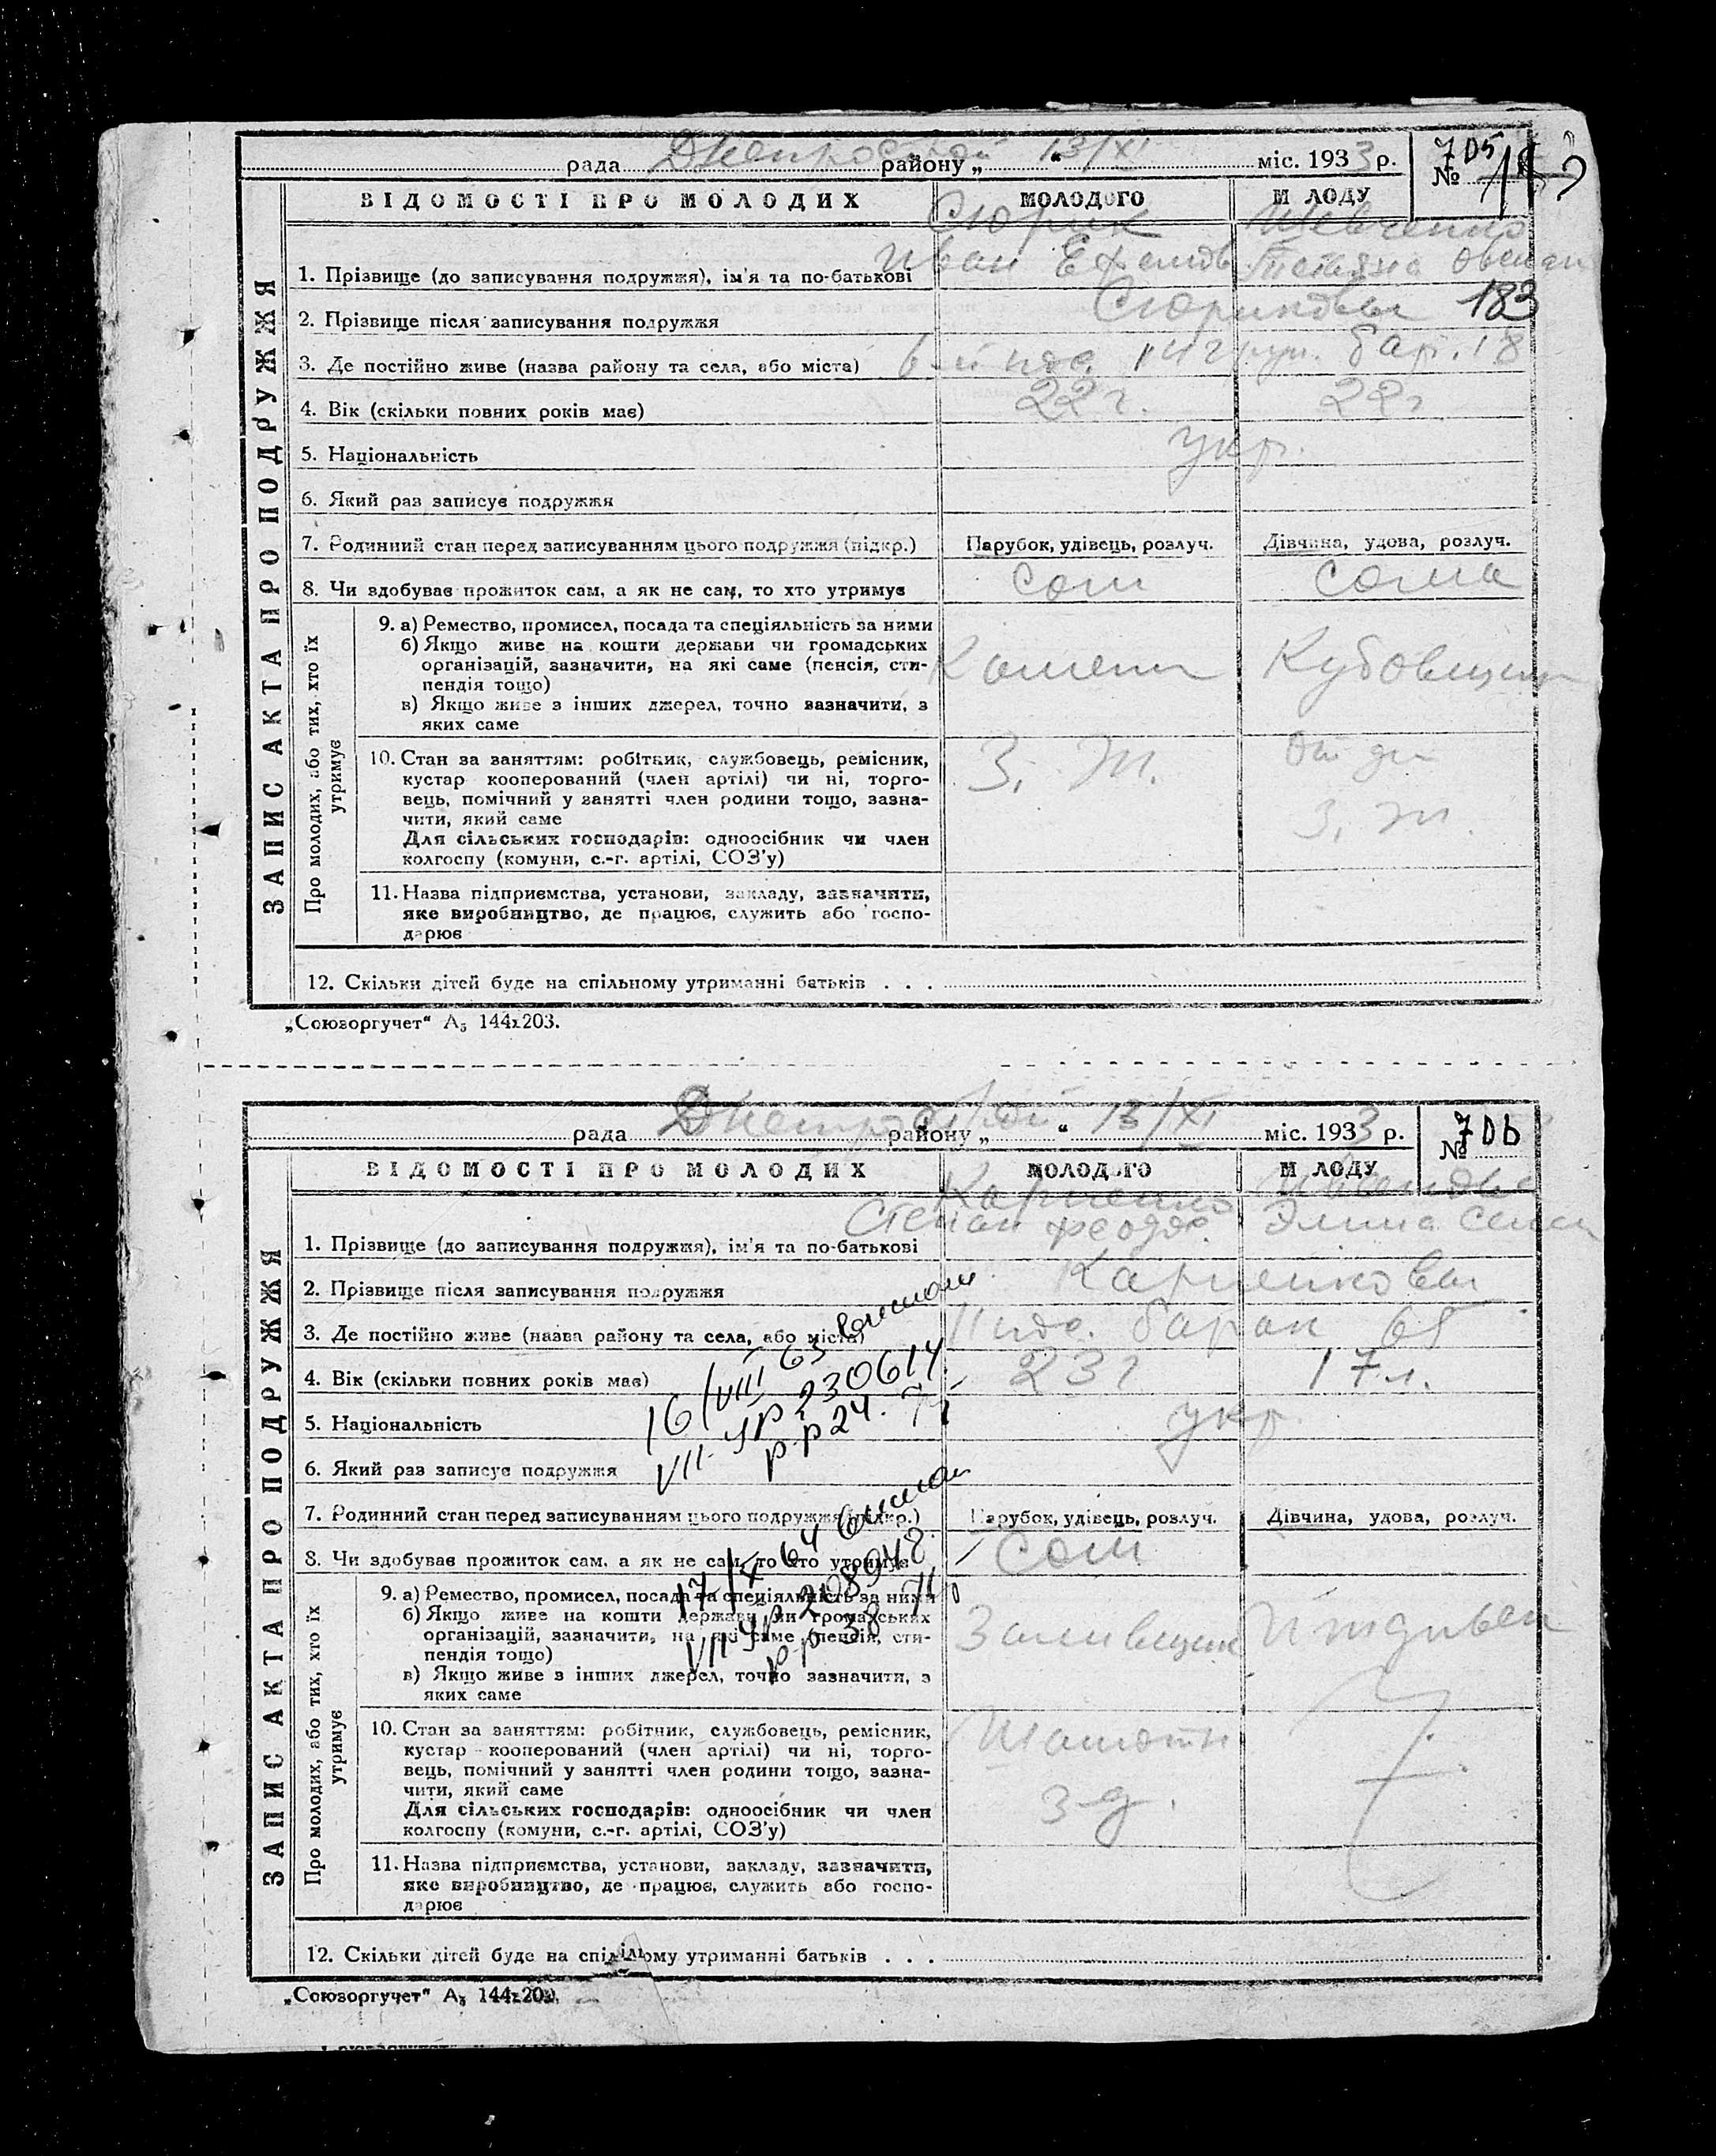 рада Днепрострой району „ “ 13/XI міс. 1933 р.
№ 705
ВІДОМОСТІ ПРО МОЛОДИХ МОЛОДОГО М ЛОДУ
ЗАПИС АКТА ПРО ПОДРУЖЖЯ
Сюрик Шевченко
1. Прізвище (до записування подружжя), ім'я та по-батькові Иван Ефимов Татьяна
2. Прізвище після записування подружжя Сюриковы 183
3. Де постійно живе (назва району та села, або міста) бар. 18
4. Вік (скільки повних років має) 22 г. 22 г
5. Національність укр.
6. Який раз записує подружжя
7. Родинний стан перед записуванням цього подружжя (підкр.) Парубок, удівець, розлуч. Дівчина, удова, розлуч.
8. Чи здобуває прожиток сам, а як не сам, то хто утримує Сам Сама
Про молодих, або тих, хто їх утримує
9. а) Ремество, промисел, посада та спеціяльність за ними
б) Якщо живе на кошти держави чи громадських
організацій, зазначити, на які саме (пенсія, сти-
пендія тощо)
в) Якщо живе з інших джерел, точно зазначити, з
яких саме
10. Стан за заняттям: робітник, службовець, ремісник,
кустар кооперований (член артілі) чи ні, торго-
вець, помічний у занятті член родини тощо, зазна-
чити, який саме
Для сільських господарів: одноосібник чи член
колгоспу (комуни, с.-г. артілі, СОЗ'у)
11. Назва підприємства, установи, закладу, зазначити,
яке виробництво, де працює, служить або госпо-
дарює
12. Скільки дітей буде на спільному утриманні батьків . . .
„Союзоргучет“ А₅ 144х203.
рада Днепрострой району „ “ 13/XI міс. 1933 р.
№ 706
ВІДОМОСТІ ПРО МОЛОДИХ МОЛОДОГО М ЛОДУ
ЗАПИС АКТА ПРО ПОДРУЖЖЯ
Карпенко
1. Прізвище (до записування подружжя), ім'я та по-батькові Степан Феодос.
2. Прізвище після записування подружжя Карпенковы
3. Де постійно живе (назва району та села, або міста) барак 65
4. Вік (скільки повних років має) 23 г 17 л.
16/VIII 63
230614
5. Національність укр.
6. Який раз записує подружжя
7. Родинний стан перед записуванням цього подружжя (підкр.) Парубок, удівець, розлуч. Дівчина, удова, розлуч.
8. Чи здобуває прожиток сам, а як не сам, то хто утримує Сам
Про молодих, або тих, хто їх утримує
9. а) Ремество, промисел, посада та спеціяльність за ними
б) Якщо живе на кошти держави чи громадських
організацій, зазначити, на які саме (пенсія, сти-
пендія тощо)
в) Якщо живе з інших джерел, точно зазначити, з
яких саме
Иждивен
10. Стан за заняттям: робітник, службовець, ремісник,
кустар кооперований (член артілі) чи ні, торго-
вець, помічний у занятті член родини тощо, зазна-
чити, який саме
Для сільських господарів: одноосібник чи член
колгоспу (комуни, с.-г. артілі, СОЗ'у)
11. Назва підприємства, установи, закладу, зазначити,
яке виробництво, де працює, служить або госпо-
дарює
12. Скільки дітей буде на спільному утриманні батьків . . .
„Союзоргучет“ А₅ 144х203.